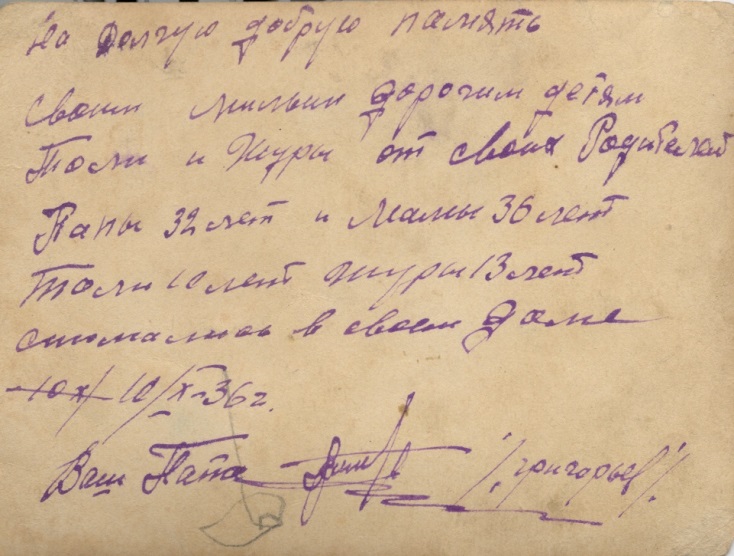 На долгую добрую память
своим милым дорогим детям
Толи и Шуры от своих Родителей
Папы 32 лет и Мамы 36 лет
Толи 10 лет Шуры 13 лет
снимались в своем доме
10/X-36 г.
Ваш Папа /Григорьев/.